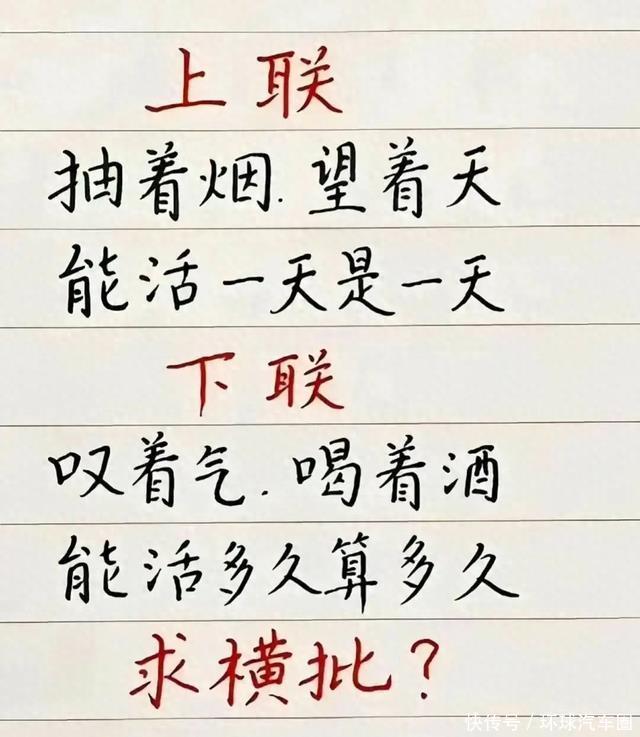 上联
抽着烟.望着天
能活一天是一天
下联
叹着气.喝着酒
能活多久算多久
求横批?
快传号/环球汽车圈